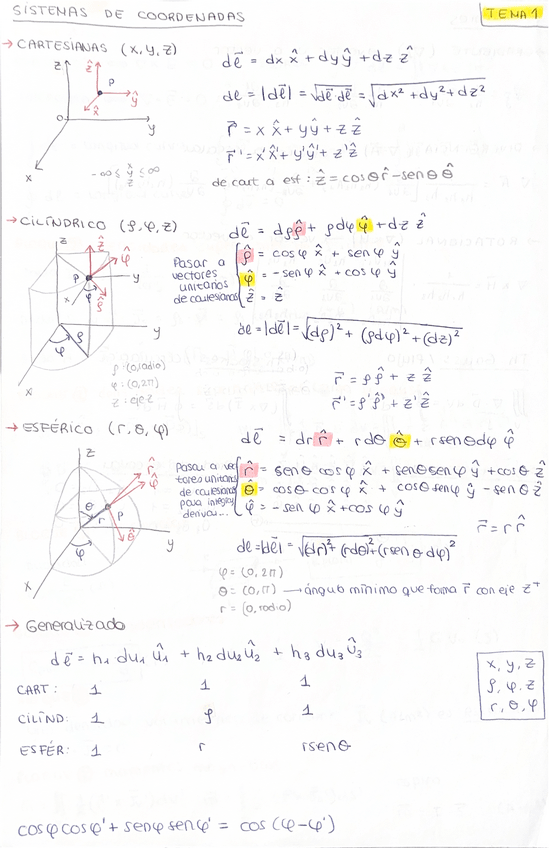 SISTEMAS DE COORDENADAS
TEMA 1
→ CARTESIANAS (x, y, z)
z ẑ P ŷ x̂ O y x
-∞ ≤ x y z ≤ ∞
dℓ⃗ = dx x̂ + dy ŷ + dz ẑ
dℓ = |dℓ⃗| = √(dℓ⃗ · dℓ⃗) = √(dx² + dy² + dz²)
r⃗ = x x̂ + y ŷ + z ẑ
r⃗' = x'x̂' + y'ŷ' + z'ẑ
de cart a esf : ẑ = cosθ r̂ - senθ θ̂
→ CILÍNDRICO (ρ, φ, z)
z ẑ φ̂ P y x φ ρ̂ ρ y φ x
ρ: (0, radio)
φ: (0, 2π)
z: eje z
dℓ⃗ = dρ ρ̂ + ρdφ φ̂ + dz ẑ
Pasar a vectores unitarios de cartesianas
ρ̂ = cosφ x̂ + senφ ŷ
φ̂ = -senφ x̂ + cosφ ŷ
ẑ = ẑ
dℓ = |dℓ⃗| = √((dρ)² + (ρdφ)² + (dz)²)
r⃗ = ρ ρ̂ + z ẑ
r⃗' = ρ'ρ̂' + z'ẑ
→ ESFÉRICO (r, θ, φ)
z r̂ φ̂ θ r P θ̂ y φ x
dℓ⃗ = dr r̂ + r dθ θ̂ + r senθ dφ φ̂
Pasar a vectores unitarios de cartesianas para integrar, derivar...
r̂ = senθ cosφ x̂ + senθ senφ ŷ + cosθ ẑ
θ̂ = cosθ cosφ x̂ + cosθ senφ ŷ - senθ ẑ
φ̂ = -senφ x̂ + cosφ ŷ
r⃗ = r r̂
dℓ = |dℓ⃗| = √((dr)² + (rdθ)² + (r senθ dφ)²)
φ = (0, 2π)
θ = (0, π) → ángulo mínimo que forma r⃗ con eje z⁺
r = (0, radio)
→ Generalizado
dℓ⃗ = h₁ du₁ û₁ + h₂ du₂ û₂ + h₃ du₃ û₃
CART: 1 1 1
CILÍND: 1 ρ 1
ESFÉR: 1 r r senθ
x, y, z
ρ, φ, z
r, θ, φ
cosφ cosφ' + senφ senφ' = cos(φ-φ')